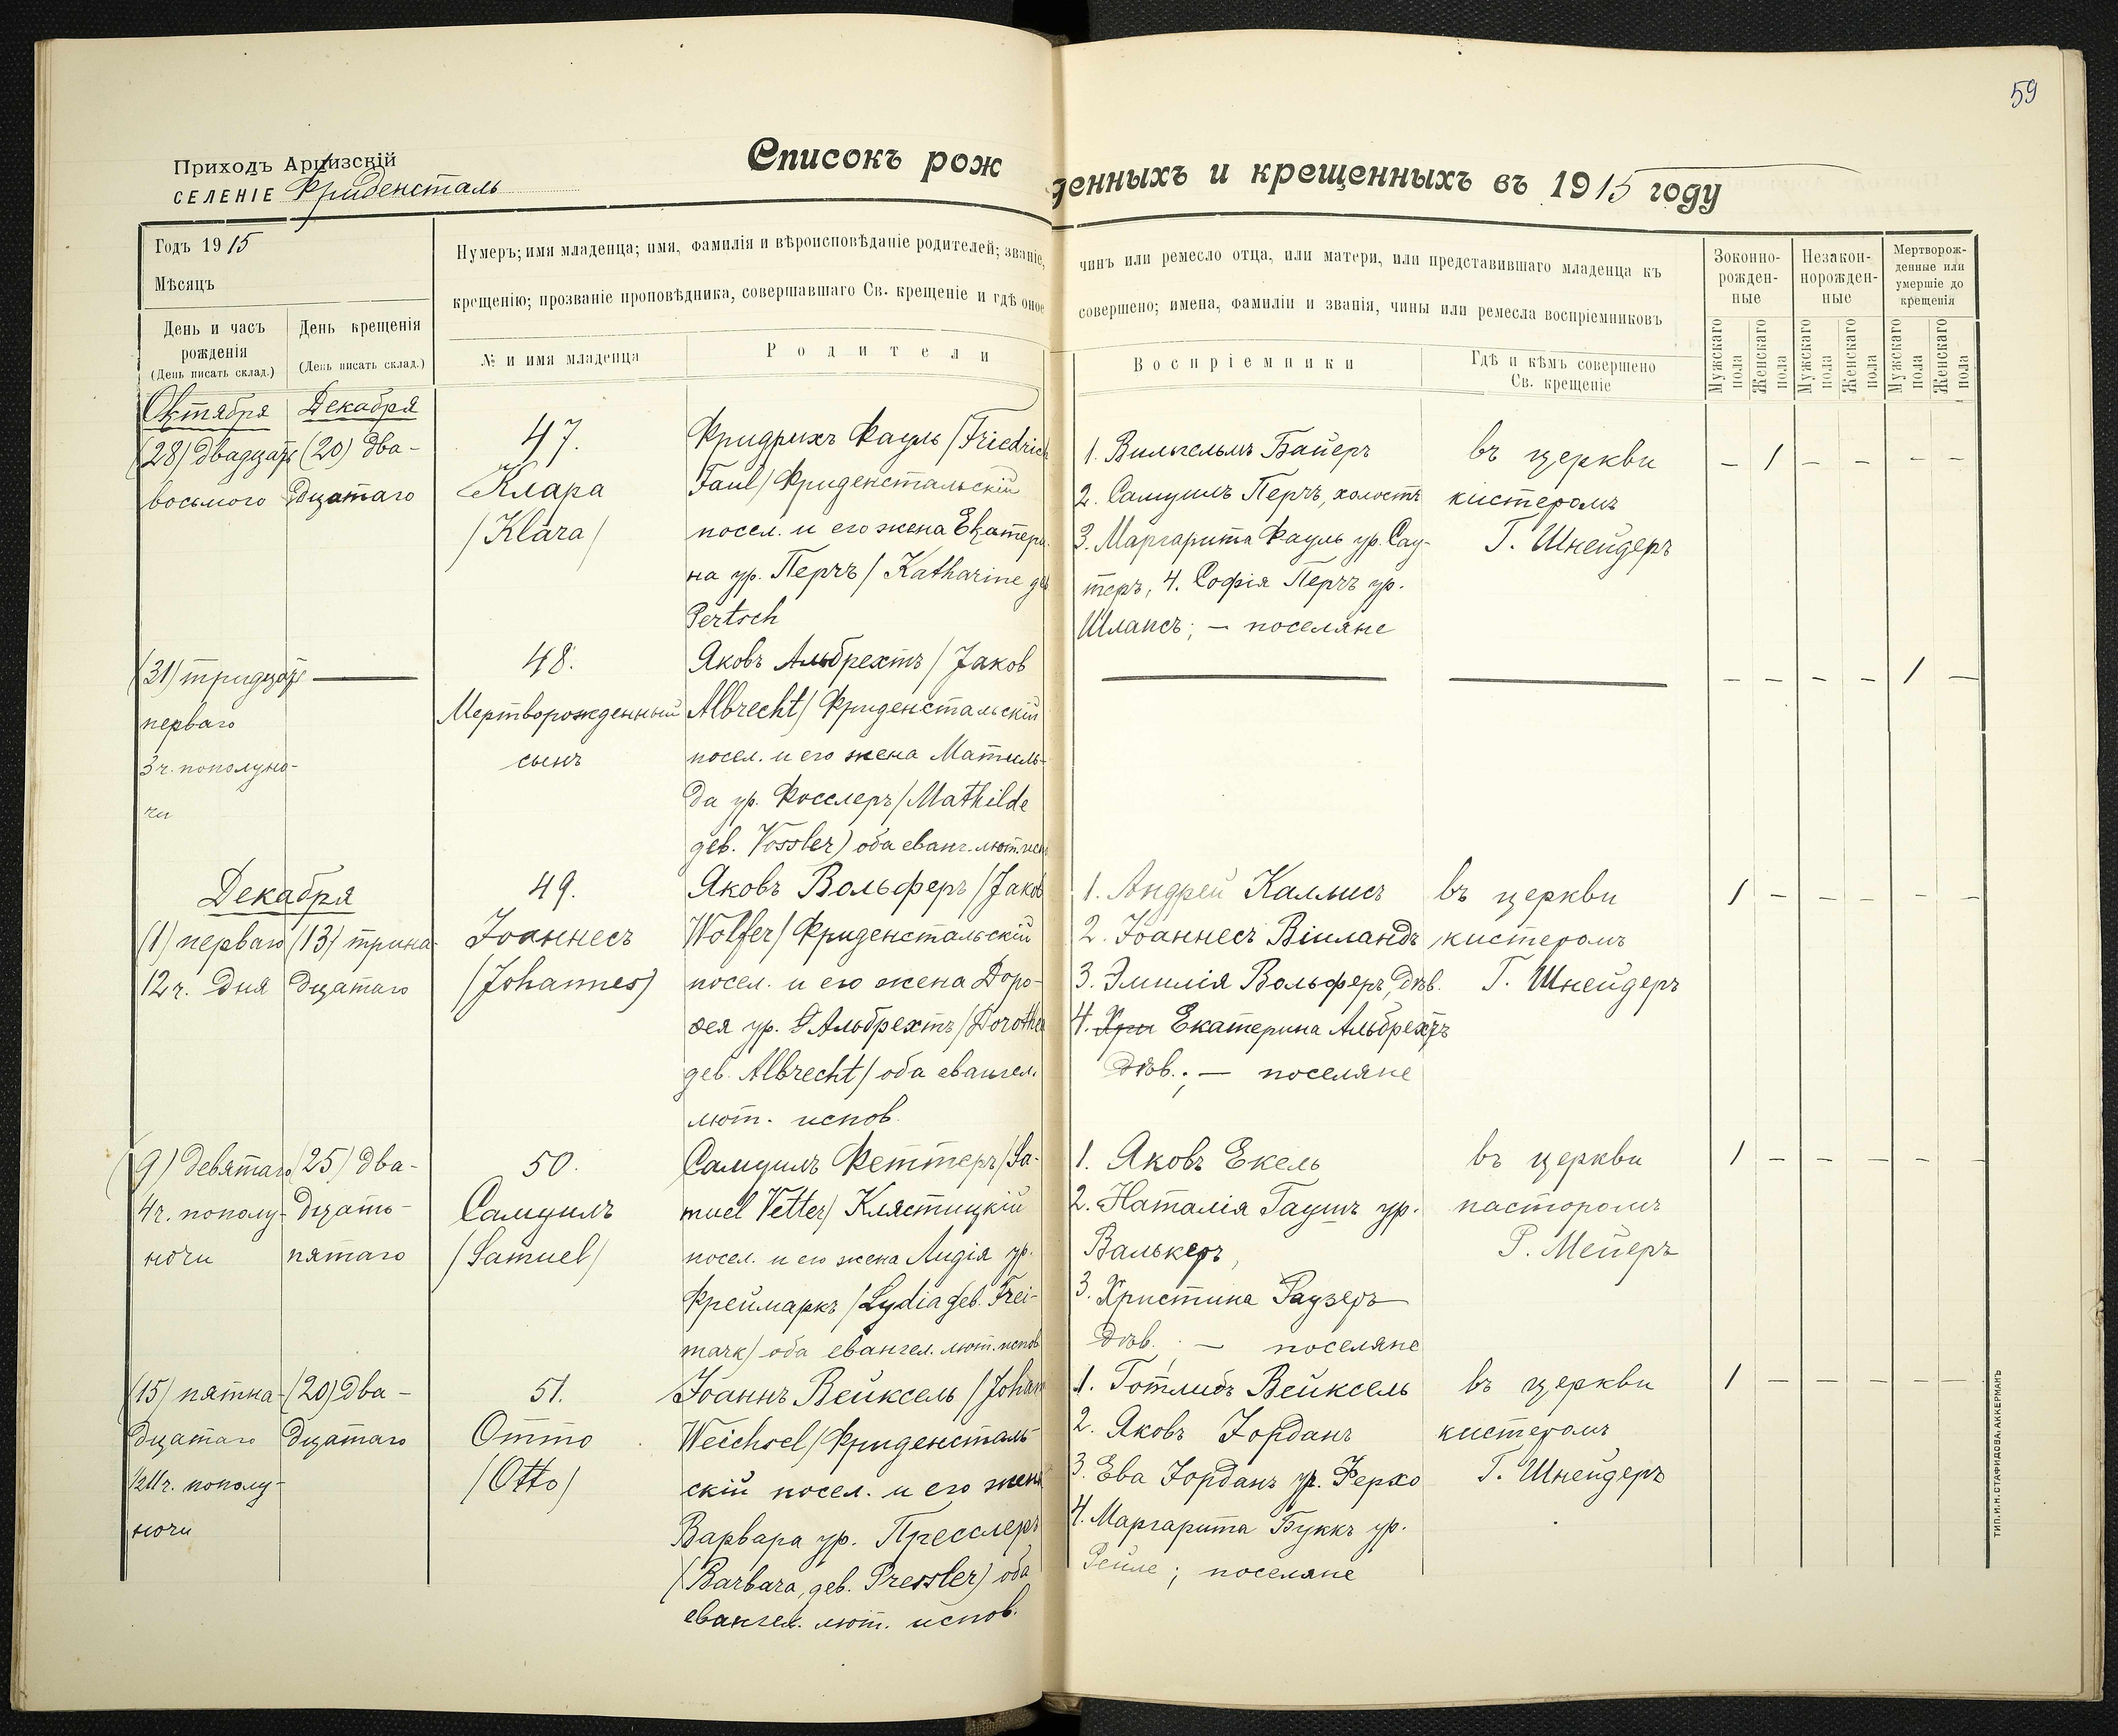 59
Приходъ Арцизскій
СЕЛЕНІЕ Фриденсталь
Списокъ рожденныхъ и крещенныхъ въ 1915 году
Годъ 1915
Мѣсяцъ
День и часъ рожденія
(День писать склад.)
День крещенія
(День писать склад.)
Нумеръ; имя младенца; имя, фамилія и вѣроисповѣданіе родителей; званіе, чинъ или ремесло отца, или матери, или представившаго младенца къ
крещенію; прозваніе проповѣдника, совершавшаго Св. крещеніе и гдѣ оное совершено; имена, фамиліи и званія, чины или ремесла воспріемниковъ
№ и имя младенца
Родители
Воспріемники
Гдѣ и кѣмъ совершено
Св. крещеніе
Зоконно-
рожден-
ные
Незакон-
норожден-
ные
Мертворож-
денные или
умершіе до
крещенія
Мужскаго пола
Женскаго пола
Мужскаго пола
Женскаго пола
Мужскаго пола
Женскаго пола
Октября
(28) двадцать
восьмого
Декабря
(20) два-
дцатаго
47.
Клара
/Klara/
Фридрихъ Фауль /Friedrich
Faul/ Фриденстальскій
посел. и его жена Екатери-
на ур. Перчъ / Katharine geb
Pertsch
1. Вильгельмъ Байеръ
2. Самуилъ Перчъ, холостъ
3. Маргарита Фауль ур. Сау-
теръ, 4. Софія Перчъ ур.
Шлапсъ; — поселяне
въ церкви
кистеромъ
Г. Шнейдеръ
— 1 — — — —
(31) тридцать
перваго
3 ч. пополуно-
чи
—
48.
Мертворожденный
сынъ
Яковъ Альбрехтъ / Jakob
Albrecht/ Фриденстальскій
посел. и его жена Матиль-
да ур. Фосслеръ /Mathilde
geb. Vossler) оба еванг. лют. исп
— — — — 1 —
Декабря
(1) перваго
12 ч. дня
(13) трина-
дцатаго
49.
Іоаннесъ
(Johannes)
Яковъ Вольферъ /Jakob
Wolfer/ Фриденстальскій
посел. и его жена Доро-
ѳея ур. Альбрехтъ /Dorothea
geb. Albrecht/ оба евангел.
лют. испов.
1. Андрей Каллисъ
2. Іоаннесъ Віиландъ
3. Эмилія Вольферъ, дѣв.
4. Хри Екатерина Альбрехтъ
дѣв.; — поселяне
въ церкви
кистеромъ
Г. Шнейдеръ
1 — — — — —
(9) девятаго
4 ч. пополу-
ночи
(25) два-
дцать-
пятаго
50.
Самуилъ
/Samuel/
Самуилъ Феттеръ /Sa-
muel Vetter/ Клястицкій
посел. и его жена Лидія ур.
Фреймаркъ /Lydia geb. Frei-
mark) оба евангел. лют. испов
1. Яковъ Екель
2. Наталія Гаушъ ур.
Валькеръ,
3. Христина Раузеръ
дѣв. — поселяне
въ церкви
пасторомъ
Р. Мейеръ
1 — — — — —
(15) пятна-
дцатаго
1/2 11 ч. пополу-
ночи
(20) два-
дцатаго
51.
Отто
/Otto/
Іоаннъ Вейксель /Johann
Weichsel/ Фриденсталь-
скій посел. и его жена
Варвара ур. Пресслеръ
(Barbara, geb. Pressler) оба
евангел. лют. испов.
1. Готлибъ Вейксель
2. Яковъ Іорданъ
3. Ева Іорданъ ур. Ферхо
4. Маргарита Буккъ ур.
Рейле; поселяне
въ церкви
кистеромъ
Г. Шнейдеръ
1 — — — — —
ТИП. И. Н. СТАФИДОВА, АККЕРМАНЪ